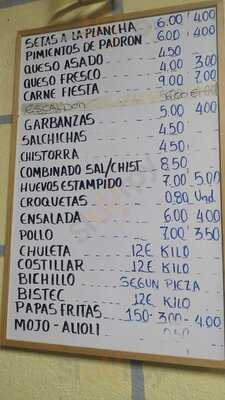 SETAS A LA PLANCHA 6.00 4.00
PIMIENTOS DE PADRON 6.00 4.00
QUESO ASADO 4.50
QUESO FRESCO 4.00 3.00
CARNE FIESTA 9.00 7.00
ESCALDON
GARBANZAS 5.00 4.00
SALCHICHAS 4.50
CHISTORRA 4.50
COMBINADO SAL/CHIST 8.50
HUEVOS ESTAMPIDO 7.00 5.00
CROQUETAS 0.80 Und.
ENSALADA 6.00 4.00
POLLO 7.00 3.50
CHULETA 12E KILO
COSTILLAR 12E KILO
BICHILLO SEGUN PIEZA
BISTEC 12E KILO
PAPAS FRITAS 150- 300- 4.00
MOJO - ALIOLI